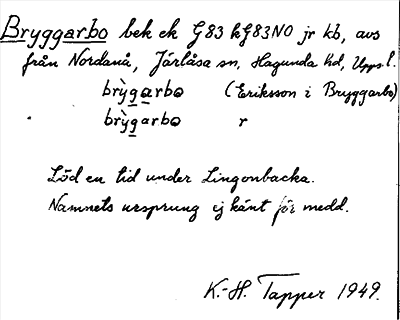 Bryggarbo bek ek G83 kG83NO jr kb, avs
från Nordanå, Järlåsa sn, Hagunda hd, Upps l.
brỳgarbo (Eriksson i Bryggarbo)
brỳgarbo r
Löd en tid under Lingonbacka.
Namnets ursprung ej känt för medd.
K.-H. Tapper 1949.